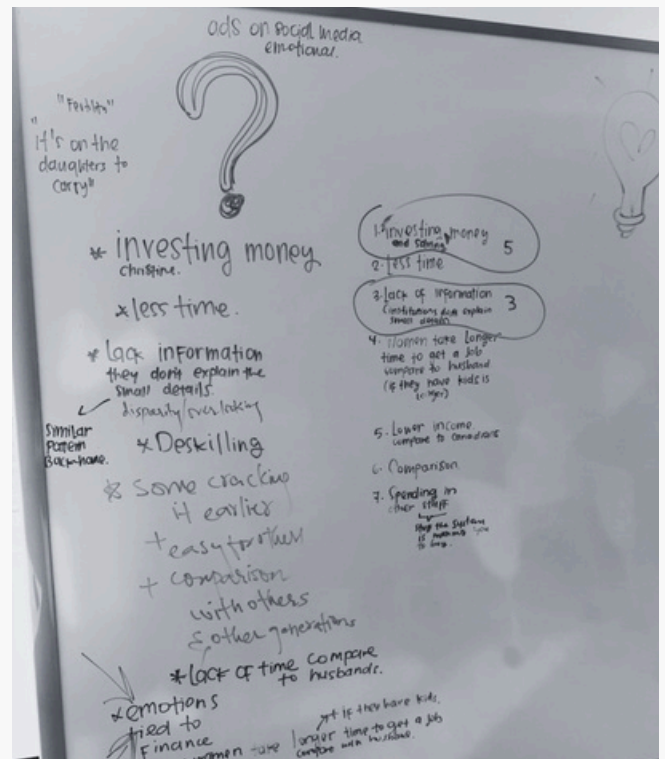 ads on social media
emotional.
"Fertility"
"it's on the
daughters to
carry"
* investing money
christine.
* less time.
* lack information
they don't explain the
small details.
disparity/overlooking
Similar
Pattern
Back home.
* Deskilling
* Some cracking
it earlier
+ easy for others
+ comparison
with others
& other generations
* lack of time compare
to husbands.
* emotions
tied to
Finance
women take longer time to get a job
compare with husband.
* if they have kids.
1. investing money
and saving
5
2. less time
3. lack of information
(institutions don't explain
small details)
3
4. Women take longer
time to get a job
compare to husband
(if they have kids is
longer)
5. Lower income
compare to Canadians
6. Comparison
7. Spending in
other stuff
the system
is making you
to buy.